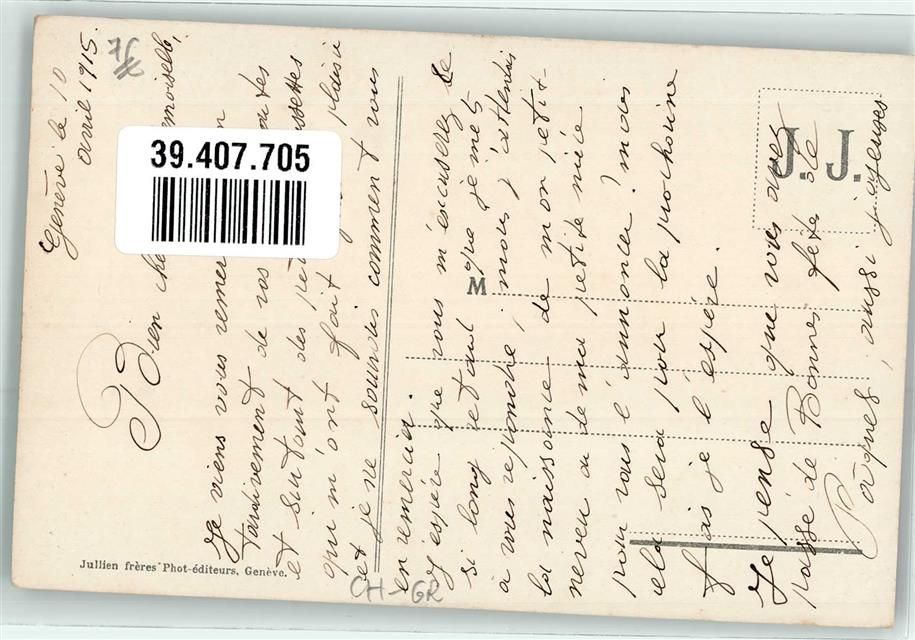 Genève le 10
avril 1915.
Bien che moiselle,
Je viens vous remer
tardivement de vos
et surtout des pet
qui m'ont fait plaisir
et je ne sourdis comment vous
en remercier.
J'espère que vous m'excuserez de
si long retard que je mets
à vous répondre, mais j'attendais
la naissance de mon petit-
neveu ou de ma petite nièce
pour vous l'annoncer! mais
cela sera pour la prochaine
fois je l'espère.
Je pense que vous avez
passé de Bonnes fêtes de
Pâques, aussi joyeuses
39.407.705
J. J.
M
Jullien frères Phot-éditeurs, Genève.
CH-GR